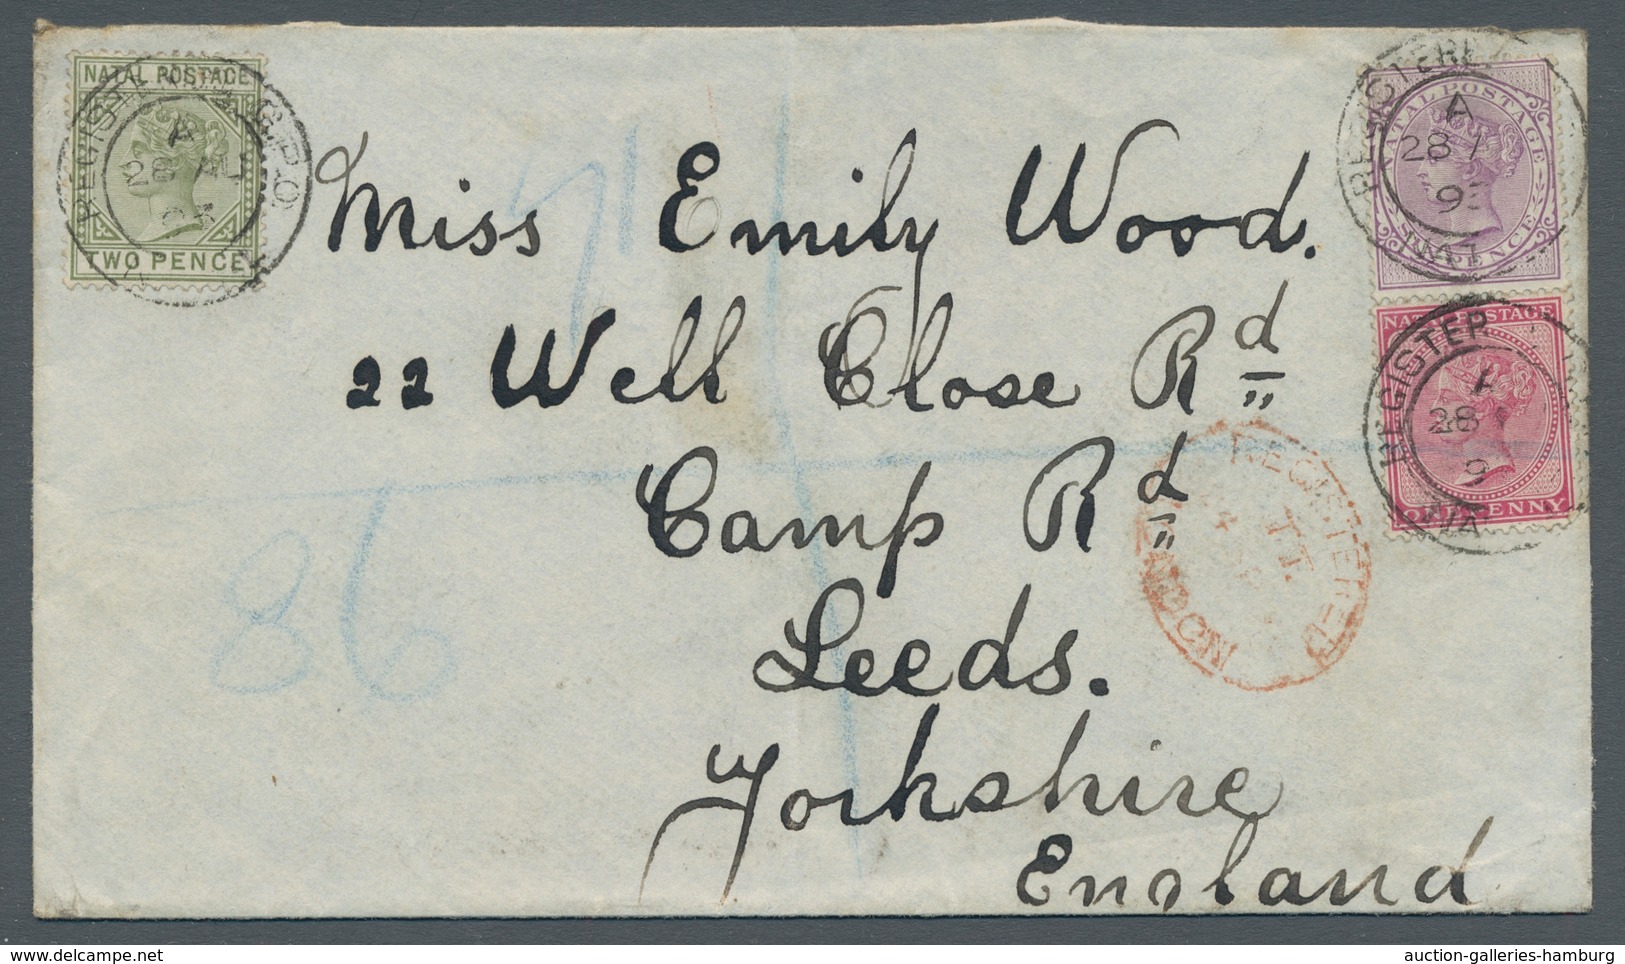 NATAL POSTAGE
TWO PENCE
G.P.O.
28
NATAL POSTAGE
PENCE
REGISTERE
A
28
NATAL POSTAGE
ONE PENNY
REGISTER
28
Miss Emily Wood.
22 Well Close Rd
Camp Rd
Leeds.
Yorkshire
England
86
REGISTERED
LONDON
auction-galleries-hamburg